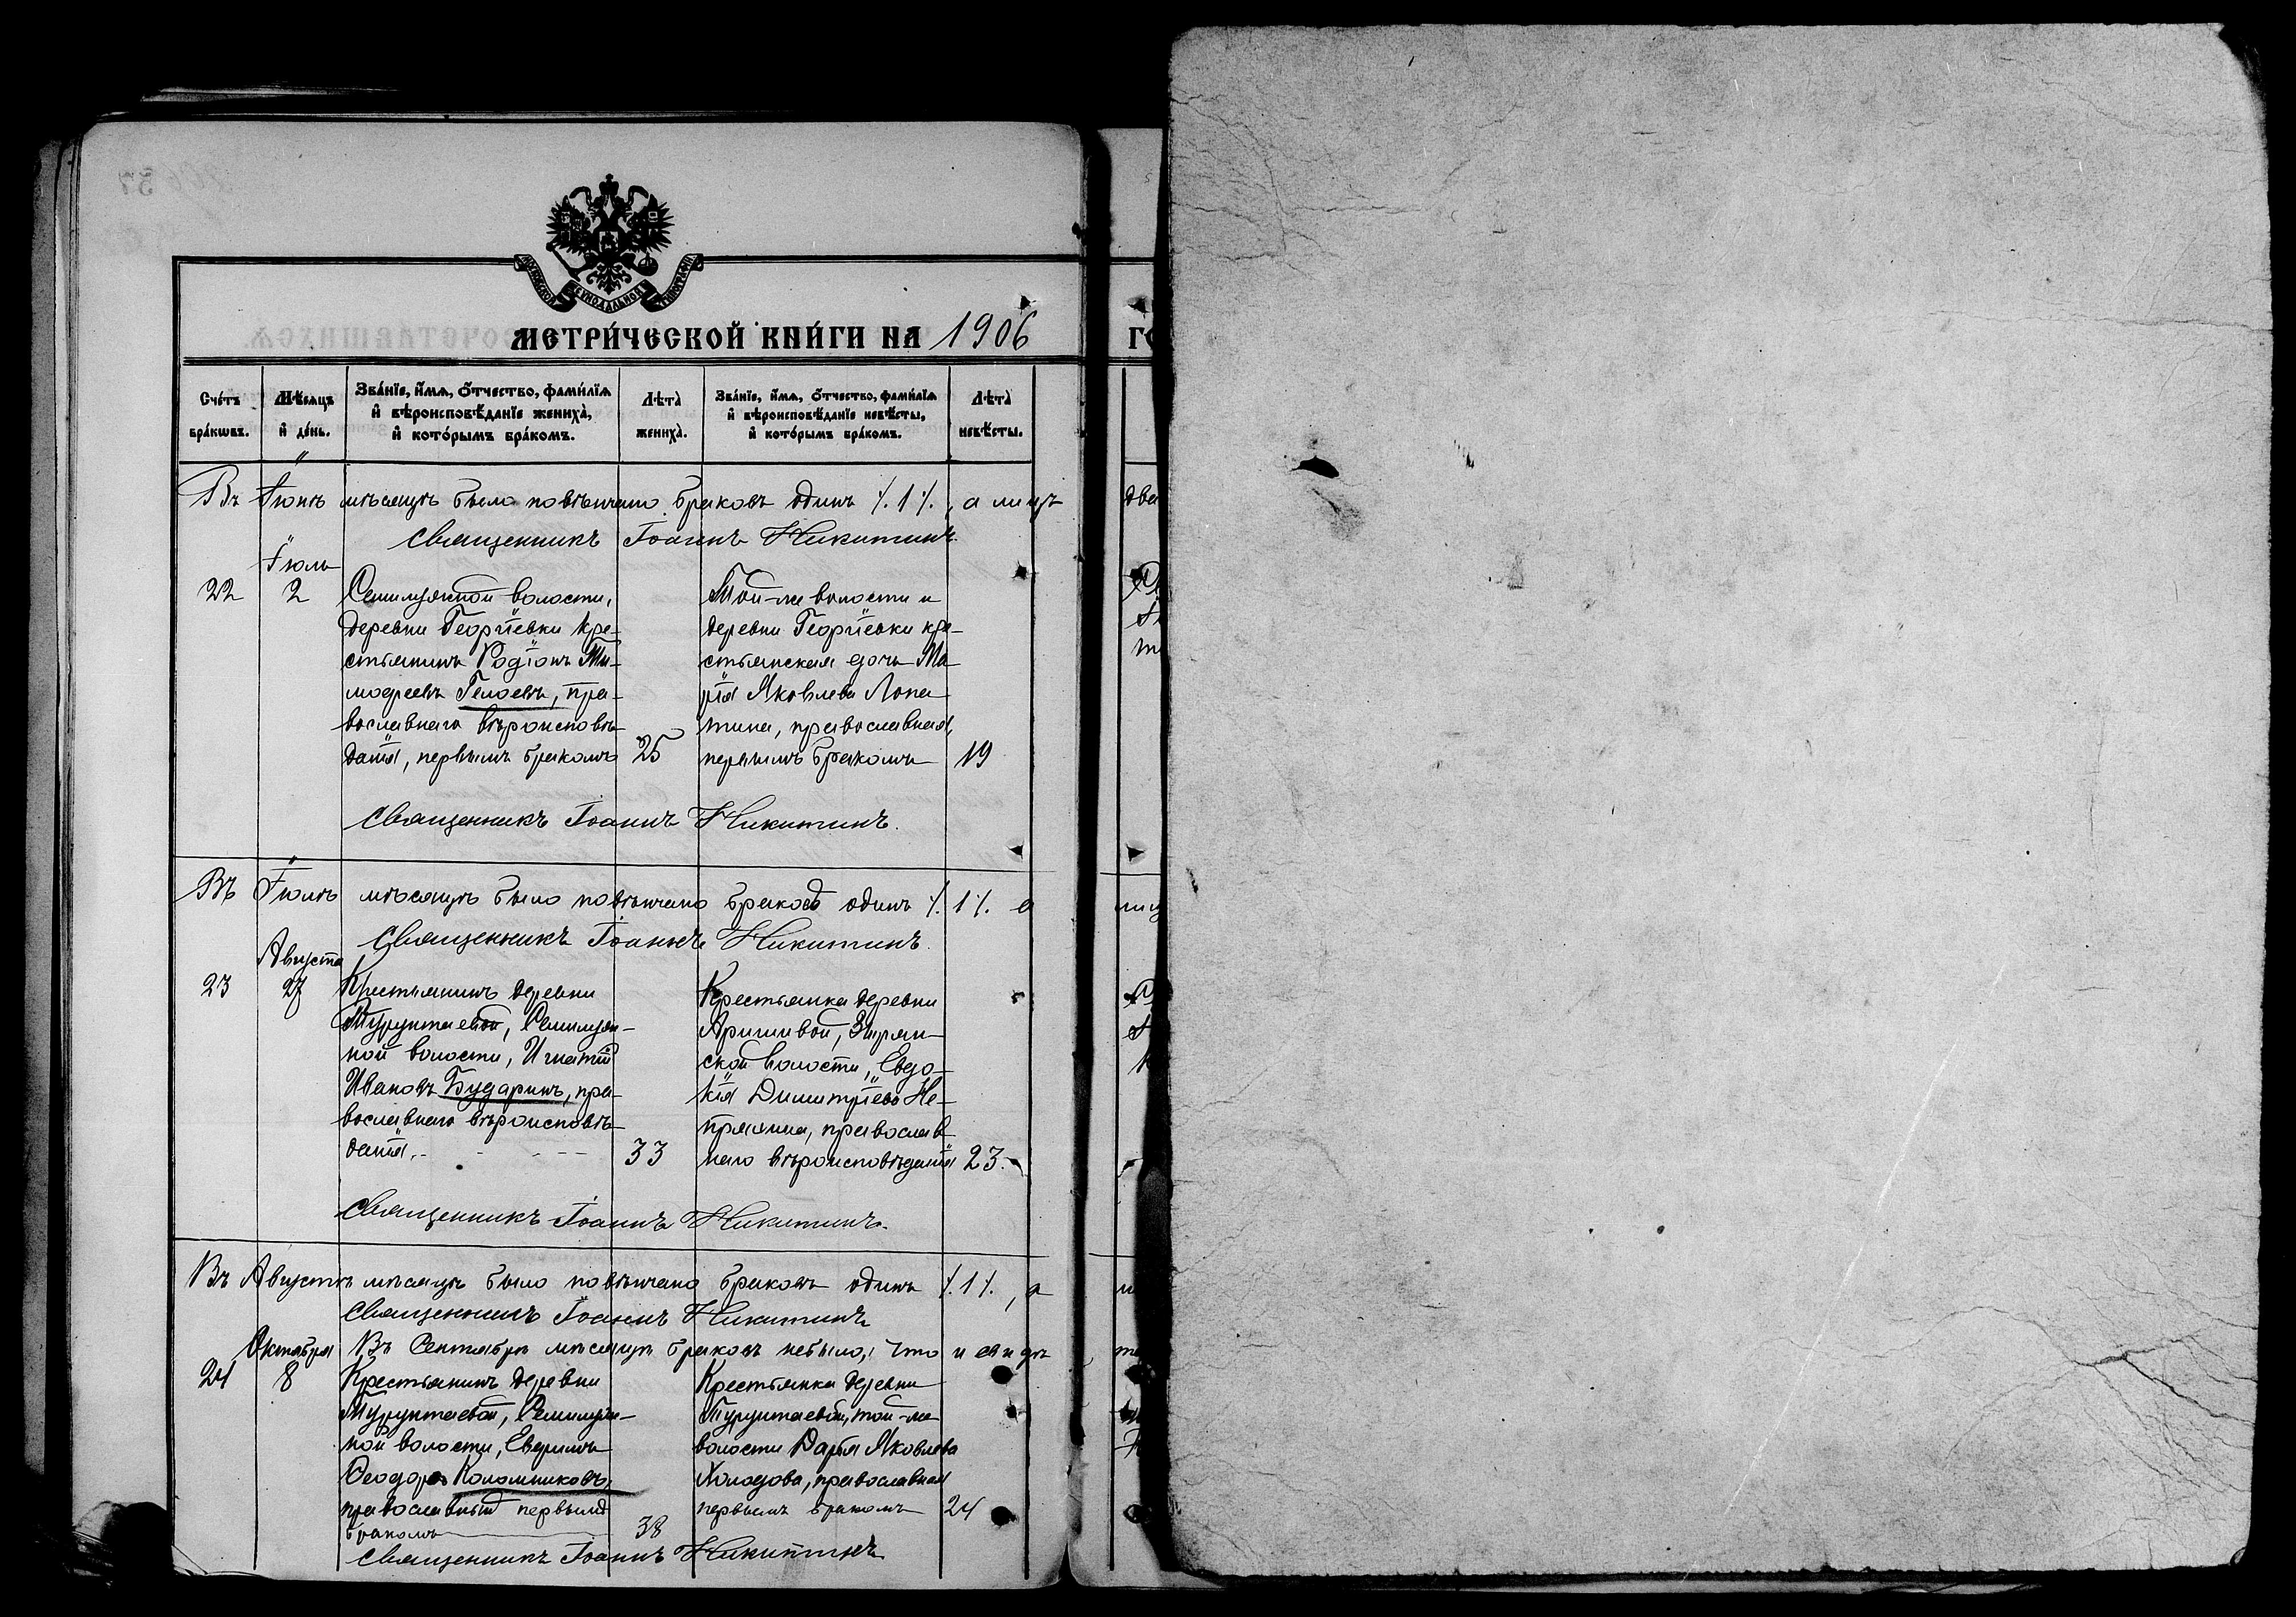 МОСКОВСКОЙ СѴНОДАЛЬНОЙ ТИПОГРАФІИ
МЕТРИ́ЧЕСКОЙ КНИ́ГИ НА 1906
Сче́тъ бра́кѡвъ.
Мѣ́сяцъ и҆ де́нь.
Зва́нїе, и҆́мѧ, ѻ҆́тчество, фами́лїѧ и҆ вѣроисповѣ́данїе жениха̀, и҆ кото́рымъ бра́комъ.
Лѣ́та̀ жениха̀.
Зва́нїе, и҆́мѧ, ѻ҆́тчество, фами́лїѧ и҆ вѣроисповѣ́данїе невѣ́сты, и҆ кото́рымъ бра́комъ.
Лѣ́та̀ невѣ́сты.
Въ Іюнѣ мѣсяцѣ было повѣнчано браковъ одинъ ⁒1⁒, а лицъ два
Священникъ Іоаннъ Никитинъ.
Іюль
22 2
Семилужной волости,
деревни Георгіевки кре-
стьянинъ Родіонъ Ти-
мофеевъ, пра-
вославнаго вѣроисповѣ-
данія, первымъ бракомъ 25
Той-же волости и
деревни Георгіевки кре-
стьянская дочь Ма-
рія Яковлева Лопа-
тина, православная,
первымъ бракомъ 19
Священникъ Іоаннъ Никитинъ.
Въ Іюлѣ мѣсяцѣ было повѣнчано браковъ одинъ ⁒1⁒ а лиц
Священникъ Іоаннъ Никитинъ.
Августа
23 27
Крестьянинъ деревни
Турунтаевой, Семилуж-
ной волости, Игнатій
Ивановъ Бударинъ, пра-
вославнаго вѣроисповѣ-
данія.- 33
Крестьянка деревни
волости, Евдо-
кія Димитріева Не-
православ
наго вѣроисповѣданія 23.
Священникъ Іоаннъ Никитинъ.
Въ Августѣ мѣсяцѣ было повѣнчано браковъ одинъ ⁒1⁒, а
Священникъ Іоаннъ Никитинъ
Октября Въ Сентябрѣ мѣсяцѣ браковъ небыло, что и свидѣ
24 8
Крестьянинъ деревни
Турунтаевой, Семилуж-
ной волости,
Ѳеодоровъ Коломниковъ,
православный первымъ
бракомъ 38
Крестьянка деревни
Турунтаевой, той-же
волости Дарья Яковлева
Холодова, православная
первымъ бракомъ 24
Священникъ Іоаннъ Никитинъ